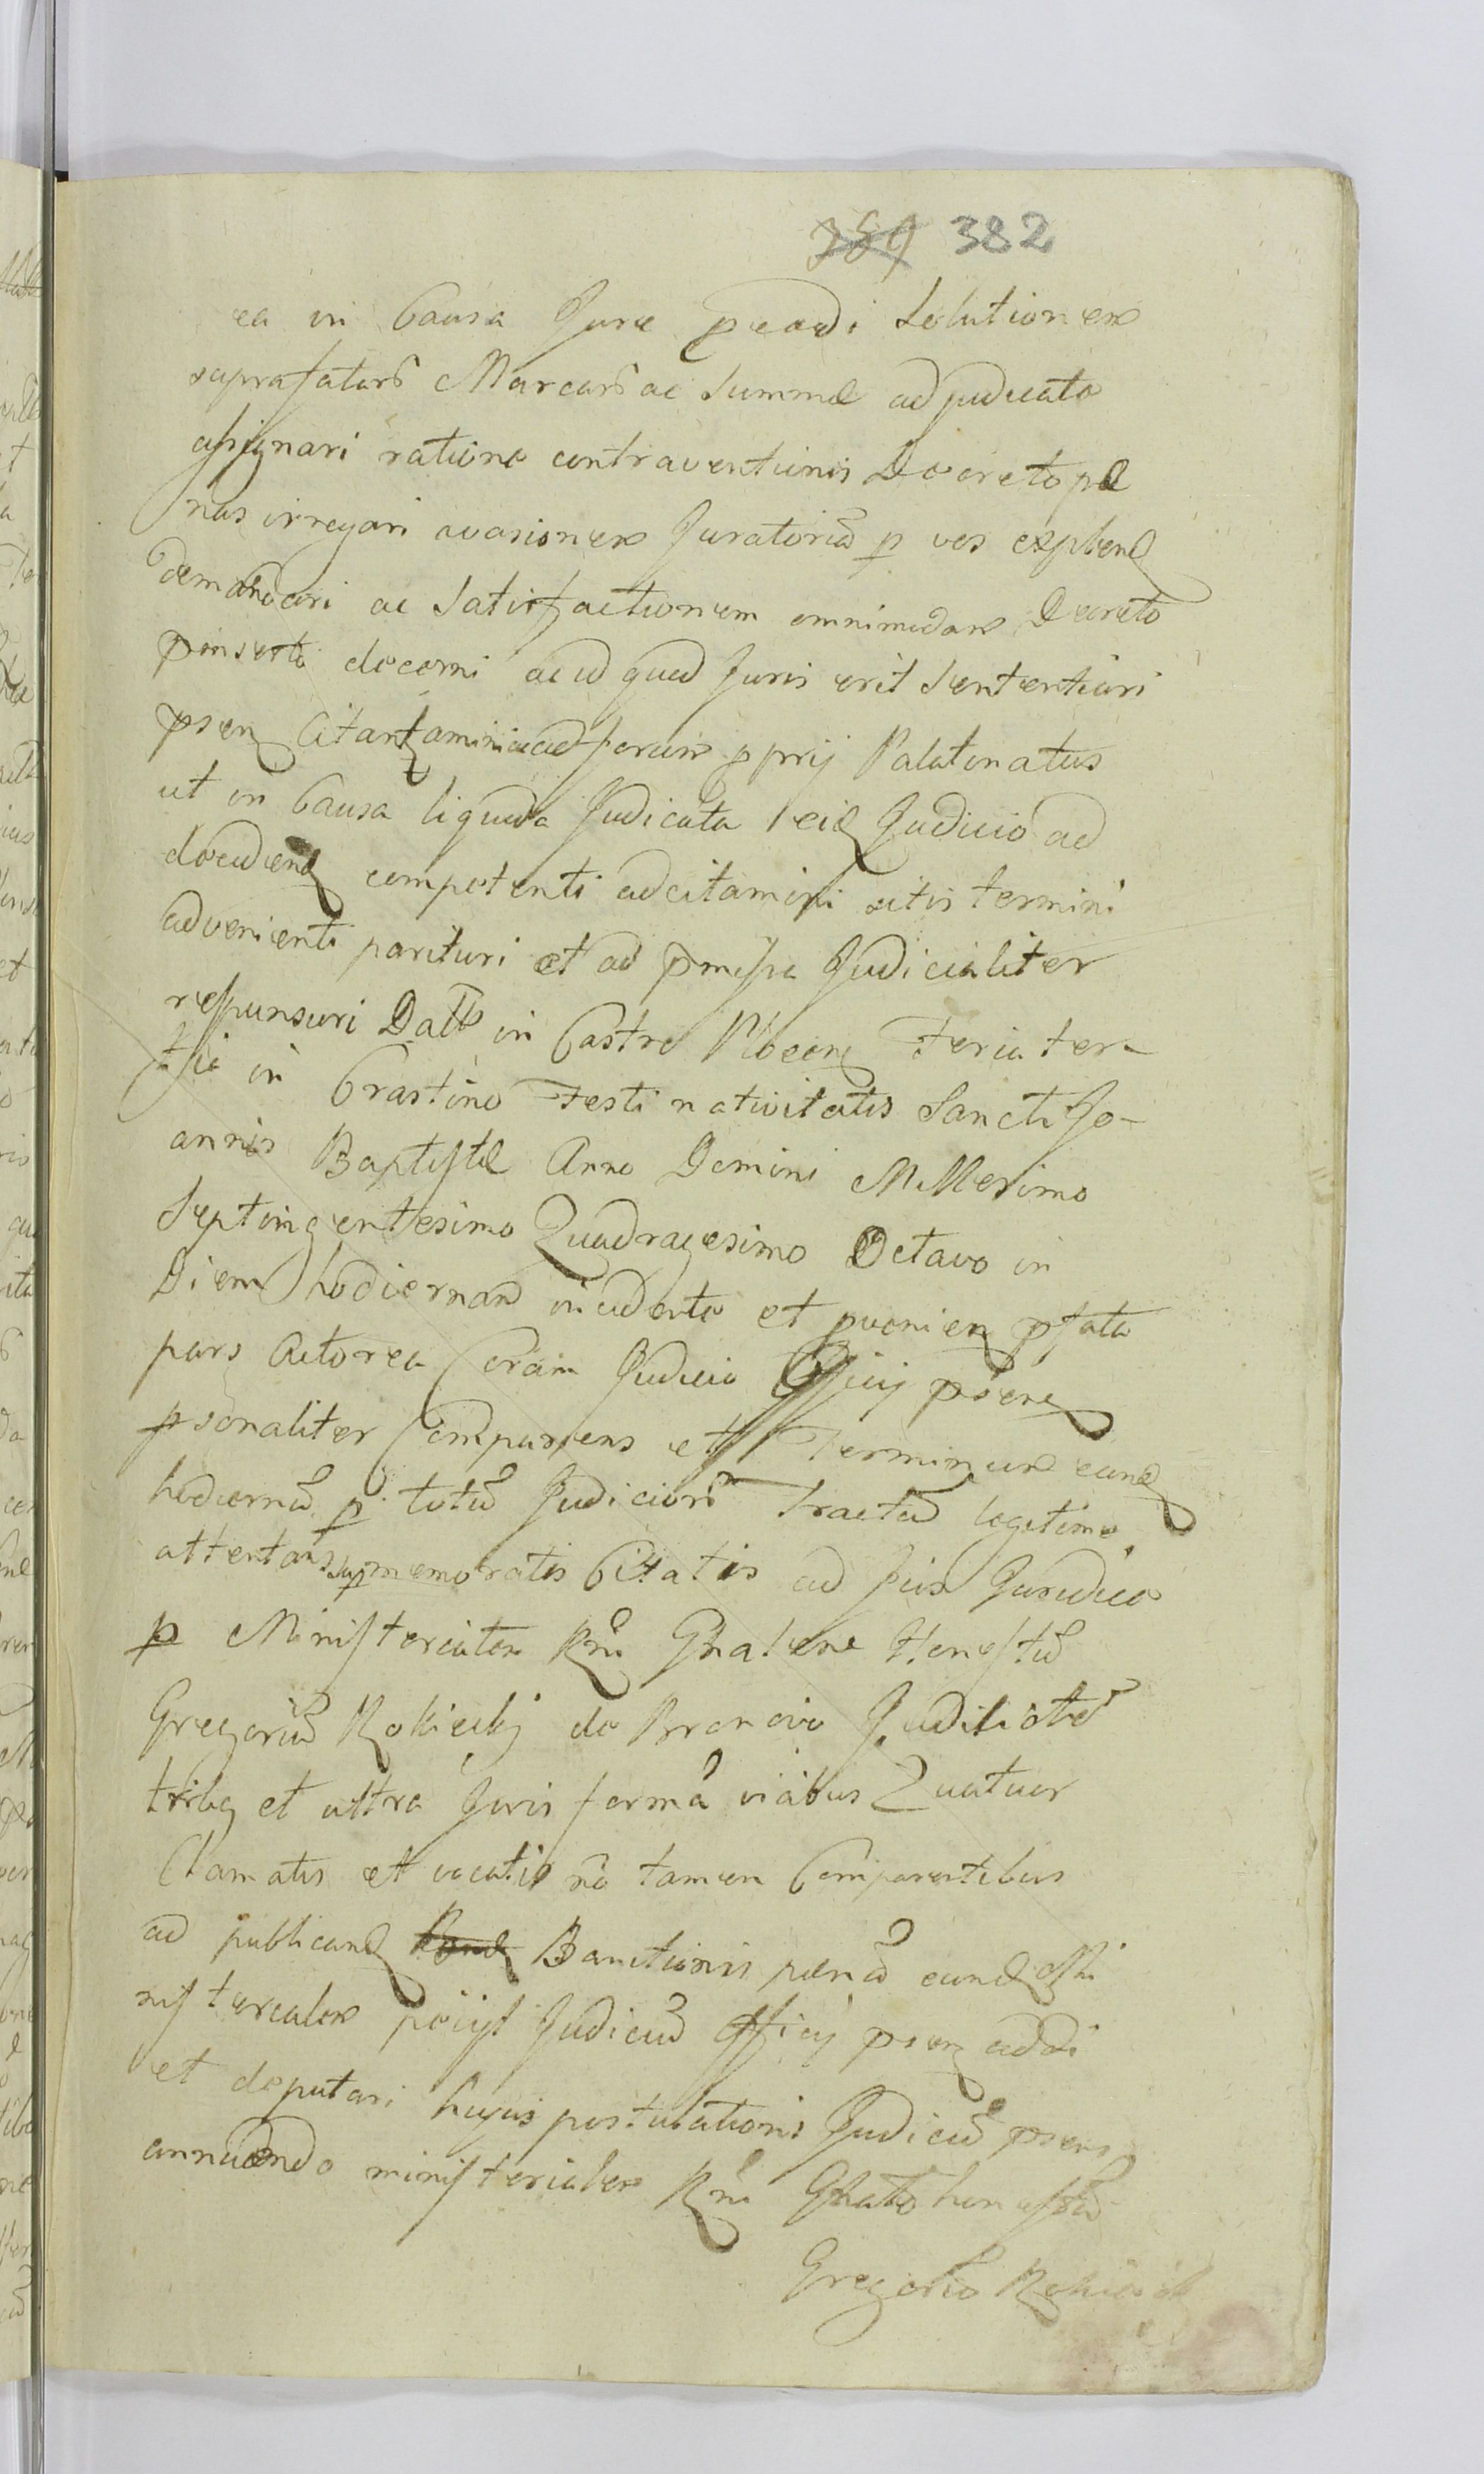 359 382
ea in Causa Jure pcedi Solutionem
suprafatarū Marcarū ac Summæ adjudicatæ
assignari ratione contraventionis Decreto pæ
nas irrogari evasionem Juratoriā p vos explend
demandari ac Satisfactionem omnimodam Decreto
pinserto decerni ac id quod Juris erit Sententiari
psen Citant ad forum pprij Palatinatus
ut in Causa liquida Judicata Judicio ad
decidend competenti adcitamini sitis termini
advenienti parituri et ad pmissa Judicialiter
responsuri Datt in Castro Plocen Feria ter-
tia in Crastino Festi nativitatis Sancti Jo-
annis Baptistæ Anno Domini Millesimo
Septingentesimo Quadragesimo Octavo in
Diem hodiernam incidente et pvenien pfata
pars Actorea Coram Judicio Officij psen
psonaliter Comparens et Terminum eund
hodiernū p totū Judiciorū Tractū legitime
attentans supmemoratis Citatis ad Jus Juridice
p Ministerialem Rni Gnalem Honestū
Gregoriū Rokicki de
tribq et ultra Juris formā viabus Quatuor
Clamatis et vocatis nō tamen Comparentibus
ad publicand Bannitionis pænā eund Mi
nisterialem Judiciū Officij psen addi
et deputari hujus postulationis Judiciū psens
annuendo ministerialem Rni Gnalem honestū
Gregoriū